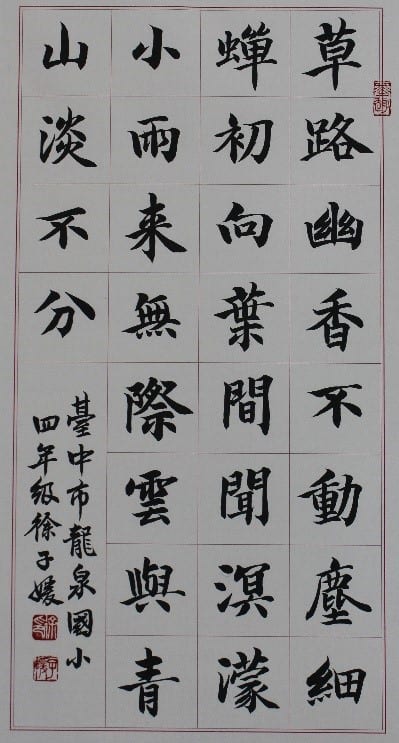 草路幽香不動塵細
蟬初向葉間聞溟濛
小雨来無際雲與青
山淡不分
臺中市龍泉國小
四年級徐子媛